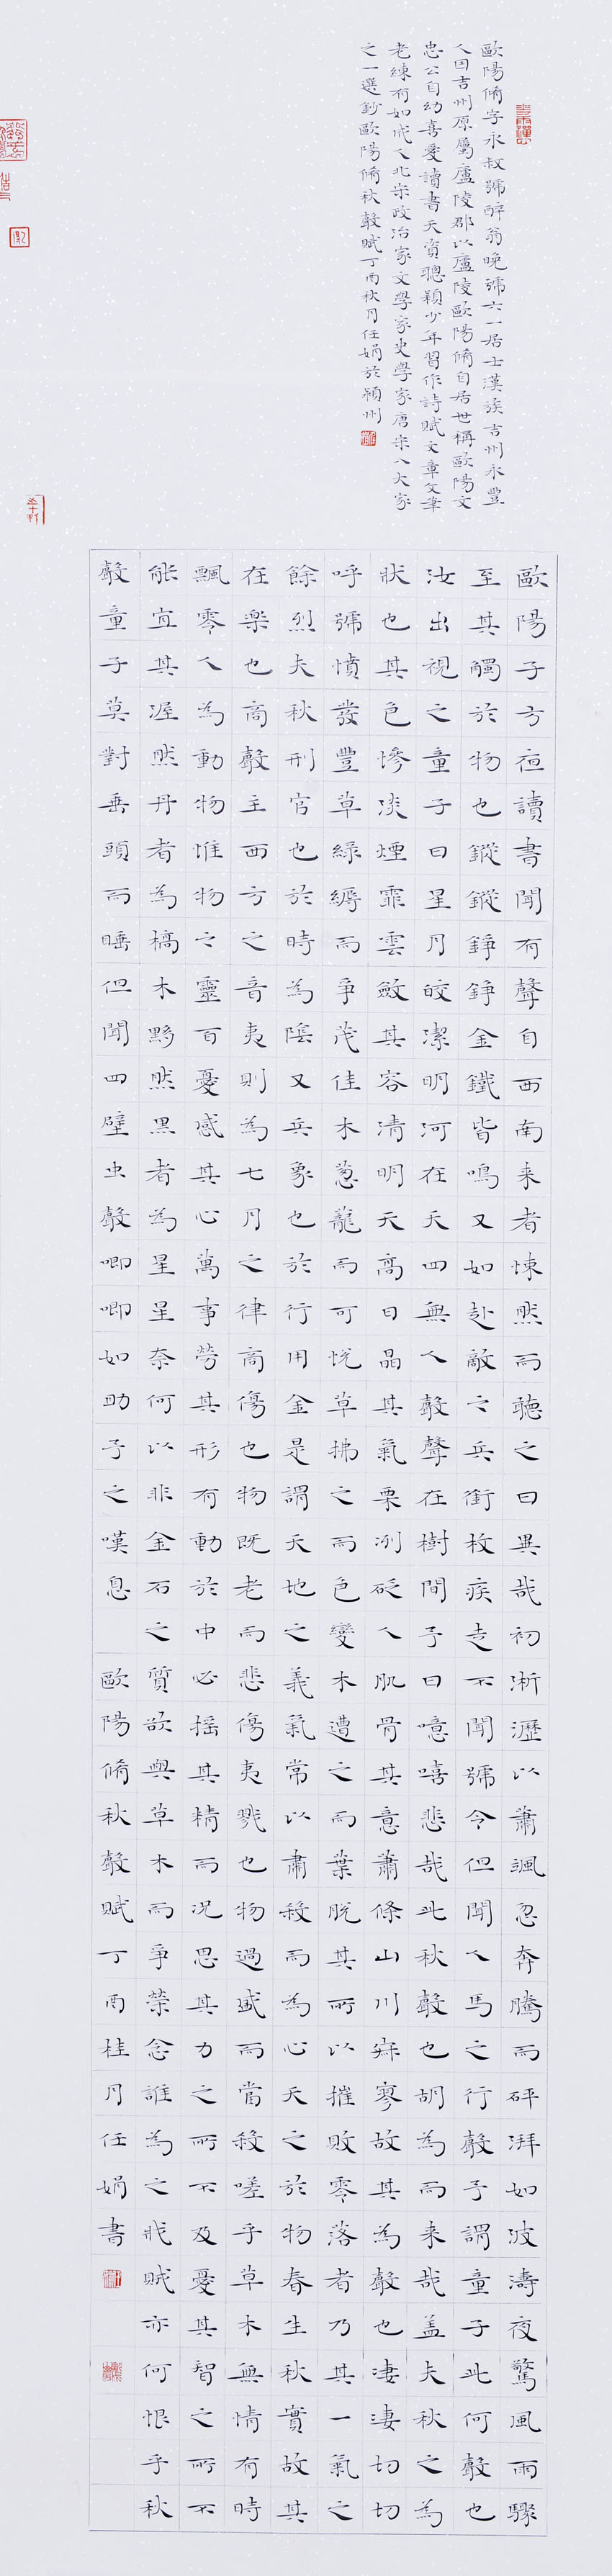 歐陽脩字永叔號醉翁晚號六一居士漢族吉州永豐
人因吉州原屬廬陵郡以廬陵歐陽脩自居世稱歐陽文
忠公自幼喜愛讀書天資聰穎少年習作詩賦文章文筆
老練有如成人北宋政治家文學家史學家唐宋八大家
之一選鈔歐陽脩秋聲賦丁酉秋月任娟於潁州
歐陽子方夜讀書聞有聲自西南來者悚然而聽之曰異哉初淅瀝以蕭颯忽奔騰而砰湃如波濤夜驚風雨驟
至其觸於物也鏦鏦錚錚金鐵皆鳴又如赴敵之兵銜枚疾走不聞號令但聞人馬之行聲予謂童子此何聲也
汝出視之童子曰星月皎潔明河在天四無人聲聲在樹間予曰噫嘻悲哉此秋聲也胡為而來哉蓋夫秋之為
狀也其色慘淡煙霏雲斂其容清明天高日晶其氣栗冽砭人肌骨其意蕭條山川寂寥故其為聲也淒淒切切
呼號憤發豐草綠縟而爭茂佳木蔥蘢而可悅草拂之而色變木遭之而葉脫其所以摧敗零落者乃其一氣之
餘烈夫秋刑官也於時為陰又兵象也於行用金是謂天地之義氣常以肅殺而為心天之於物春生秋實故其
在樂也商聲主西方之音夷則為七月之律商傷也物既老而悲傷夷戮也物過盛而當殺嗟乎草木無情有時
飄零人為動物惟物之靈百憂感其心萬事勞其形有動於中必搖其精而況思其力之所不及憂其智之所不
能宜其渥然丹者為槁木黟然黑者為星星奈何以非金石之質欲與草木而爭榮念誰為之戕賊亦何恨乎秋
聲童子莫對垂頭而睡但聞四壁虫聲唧唧如助予之嘆息 歐陽脩秋聲賦丁酉桂月任娟書